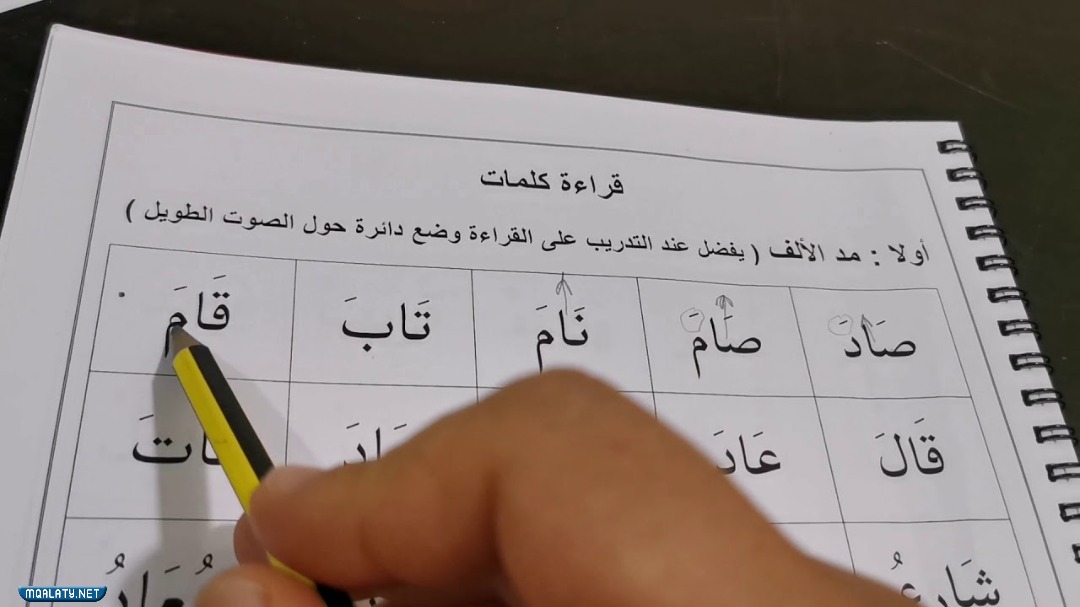 قراءة كلمات
أولا : مد الألف ( يفضل عند التدريب على القراءة وضع دائرة حول الصوت الطويل )
صَادَ صَامَ نَامَ تَابَ قَامَ
قَالَ عَادَ
شَارِعُ
MQALATY.NET